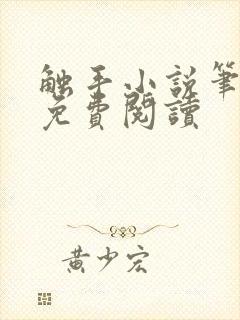 触手小说筆
免費閱讀
黄少宏